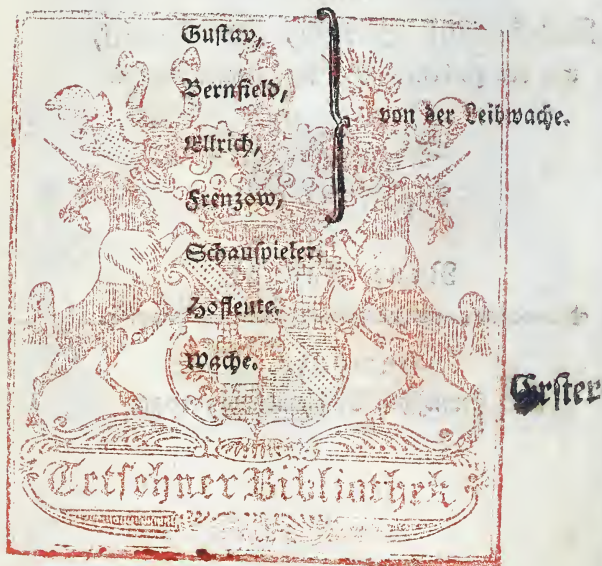 Gustav,
Bernfield,
Ellrich,
Frenzow,
von der Leibwache.
Schauspieler.
Hofleute.
Wache.
Erster
Tetschner Bibliothek